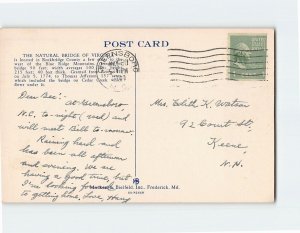 POST CARD
THE NATURAL BRIDGE OF
is located in Rockbridge County a few
west of the Blue Ridge Mountains.
bridge 90 feet; width averages 100
215 feet; 40 feet thick. Granted from
on July 5, 1774, to Thomas Jefferson 157
which included the bridge on Cedar Creek
flows under it
GREENSBORO
Dear Sis: - at Greensboro
N.C. to-night (wed) and
will meet Bill to-morrow.
Raining hard and
has been all afternoon
and evening. We are
having a good time, but
I'm looking forward
to getting home, love, Mary
Mrs. Edith K. Watson
92 Court St.
Keene,
N.H.
Marken & Bielfeld, Inc. Frederick, Md.